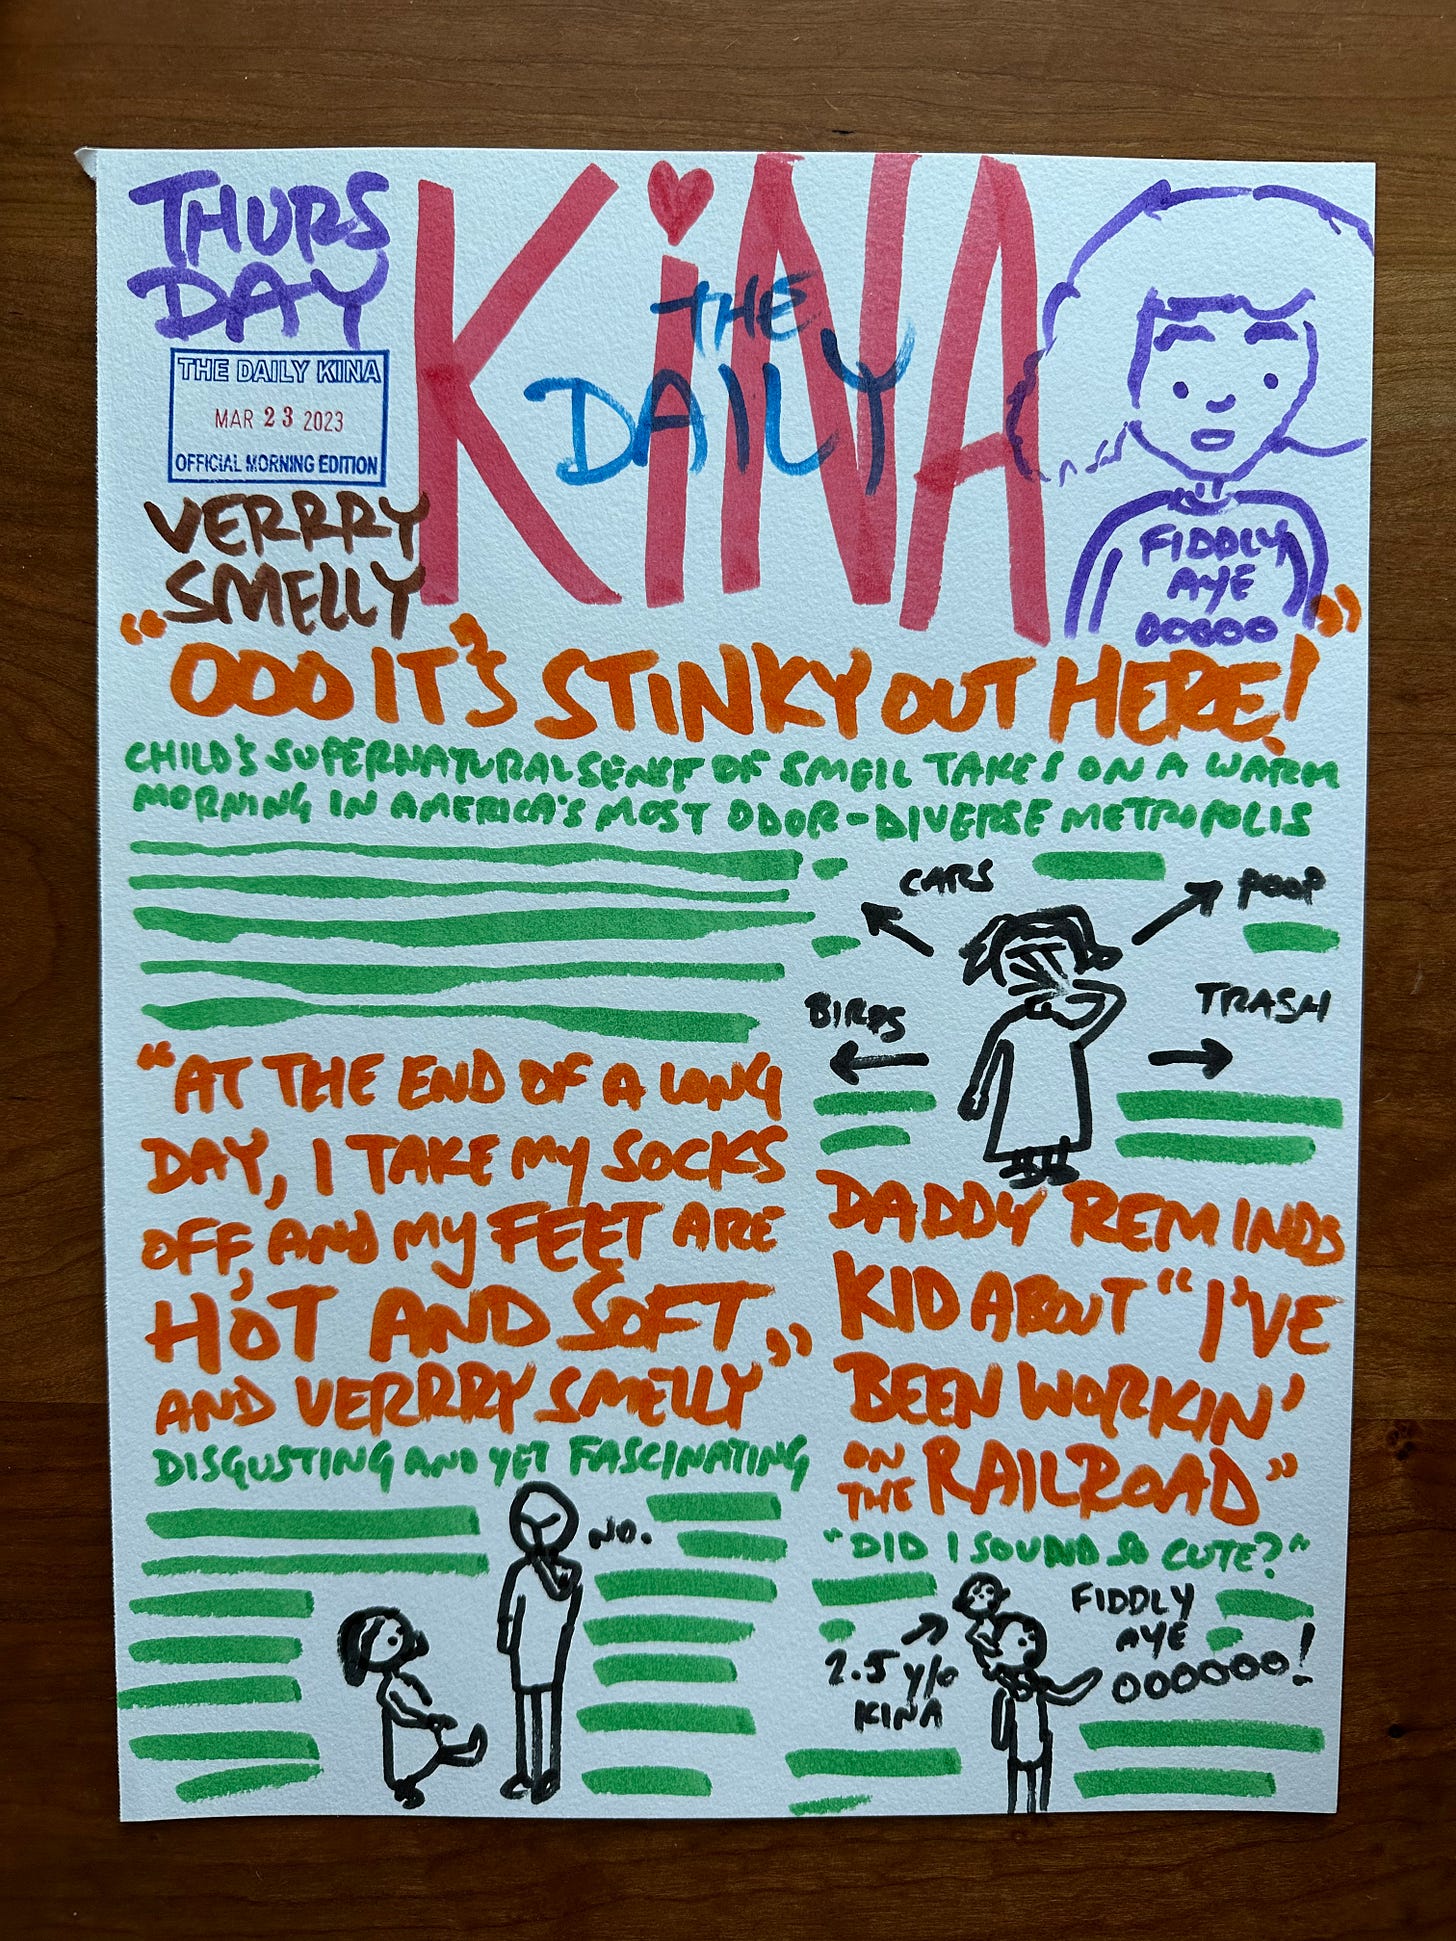 THURS
DAY
THE DAILY KINA
MAR 23 2023
OFFICIAL MORNING EDITION
VERRRY
SMELLY
KiNA
THE
DAILY
FIDDLY
AYE
OOOOO
"OOO IT'S STINKY OUT HERE!"
CHILD'S SUPERNATURAL SENSE OF SMELL TAKES ON A WARM
MORNING IN AMERICA'S MOST ODOR-DIVERSE METROPOLIS
CARS
POOP
BIRDS
TRASH
"AT THE END OF A LONG
DAY, I TAKE MY SOCKS
OFF, AND MY FEET ARE
HOT AND SOFT
AND VERRRY SMELLY"
DISGUSTING AND YET FASCINATING
NO.
DADDY REMINDS
KID ABOUT "I'VE
BEEN WORKIN'
ON
THE RAILROAD"
"DID I SOUND SO CUTE?"
2.5 y/o
KINA
FIDDLY
AYE
OOOOOO!